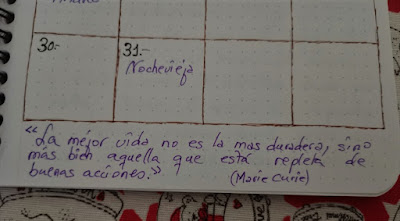 30.- 31.-
Nochevieja
"La mejor vida no es la mas duradera, sino
más bien aquella que está repleta de
buenas acciones."
(Marie Curie)